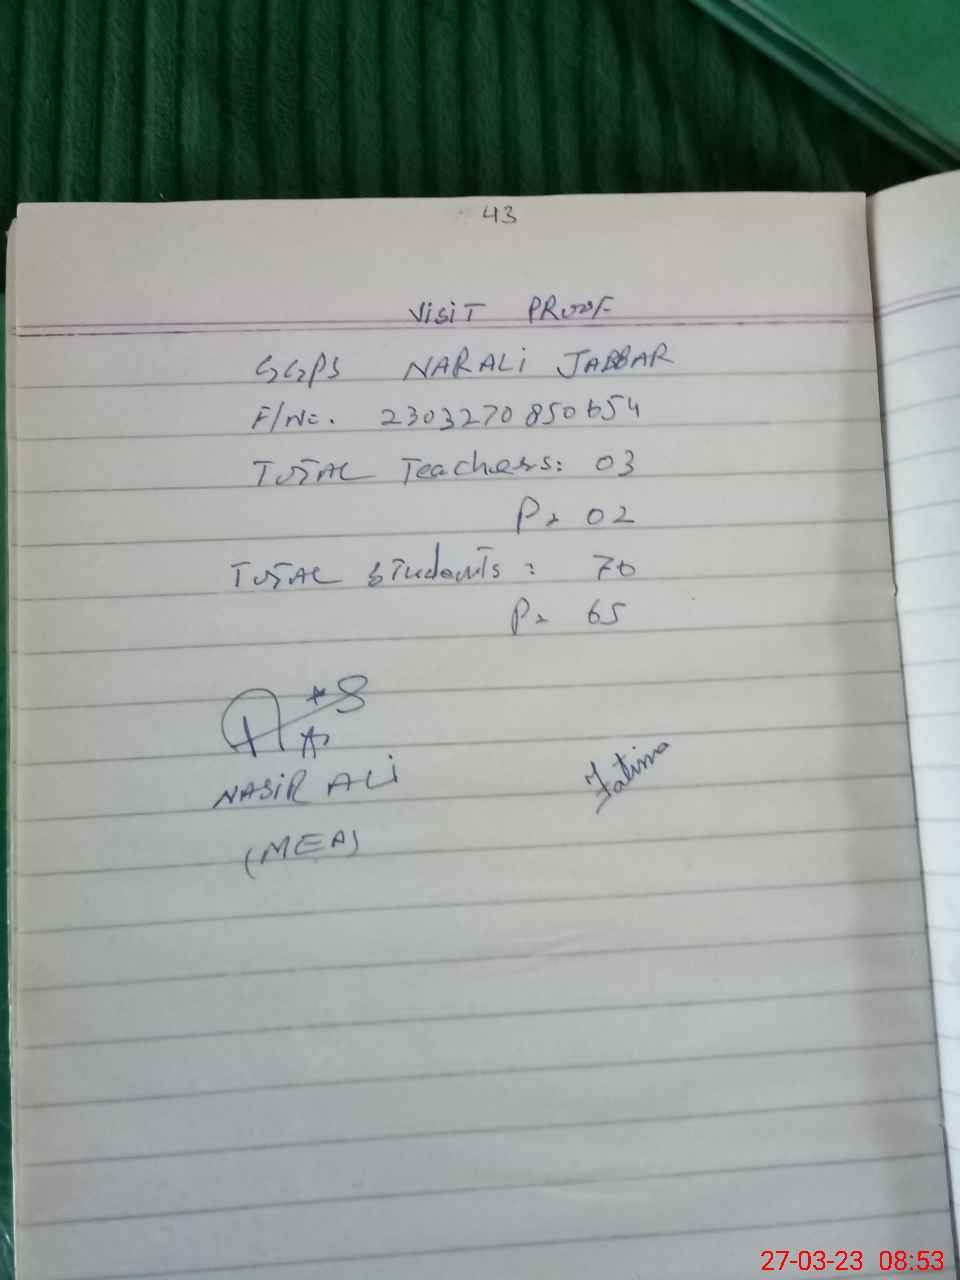 43
VISIT PROOF
GGPS NARALI JABBAR
F/No. 2303270850654
TOTAL Teachers: 03
P= 02
TOTAL Students: 70
P= 65
NASIR ALI
Fatima
(MEA)
27-03-23 08:53